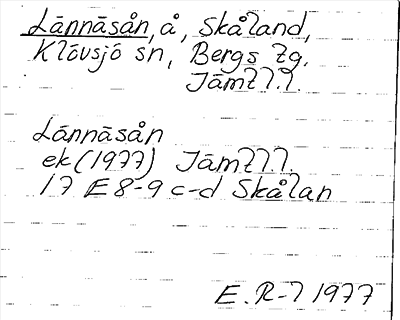 Lännäsån, å, Skåland,
Klövsjö sn, Bergs tg,
Jämtl.l.
Lännäsån
ek (1977) Jämtl.l.
17 E 8-9 c-d Skålan
E. R-l 1977